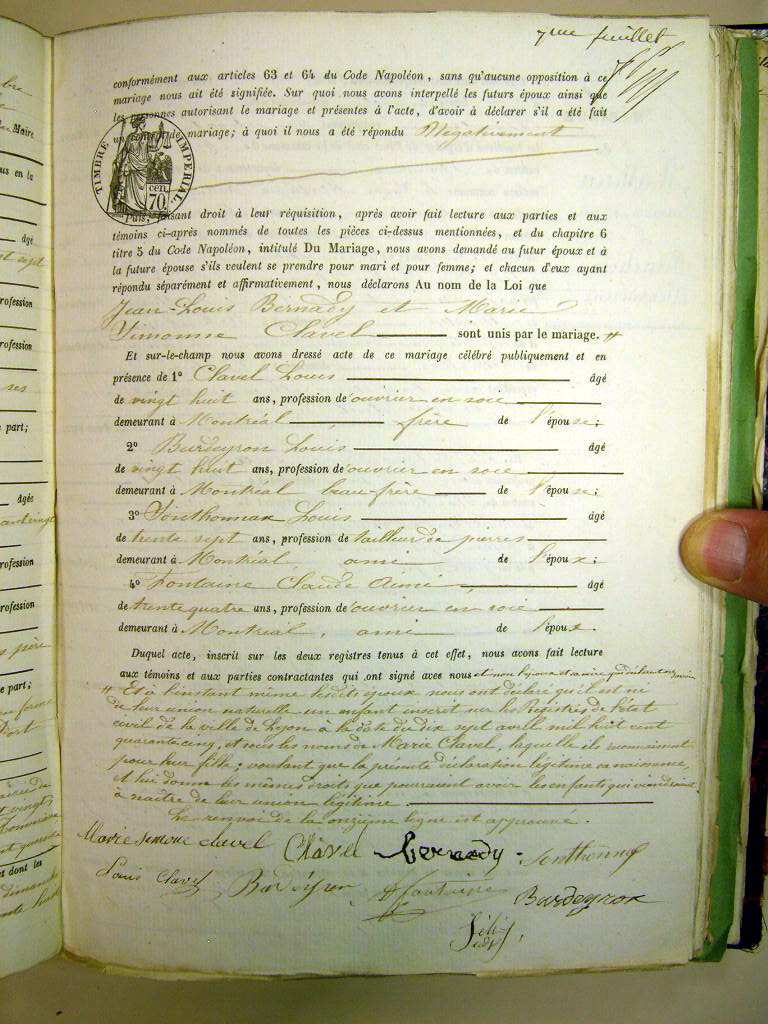 7me feuillet
conformément aux articles 63 et 64 du Code Napoléon, sans qu'aucune opposition à ce
mariage nous ait été signifiée. Sur quoi nous avons interpellé les futurs époux ainsi que
les personnes autorisant le mariage et présentes à l'acte, d'avoir à déclarer s'il a été fait
un de mariage; à quoi il nous a été répondu Négativement
TIMBRE IMPERIAL
cen.
70
Puis, faisant droit à leur réquisition, après avoir fait lecture aux parties et aux
témoins ci-après nommés de toutes les pièces ci-dessus mentionnées, et du chapitre 6
titre 5 du Code Napoléon, intitulé Du Mariage, nous avons demandé au futur époux et à
la future épouse s'ils veulent se prendre pour mari et pour femme; et chacun d'eux ayant
répondu séparément et affirmativement, nous déclarons Au nom de la Loi que
Jean-Louis Bernady et Marie
Simonne Clavel sont unis par le mariage. #
Et sur-le-champ nous avons dressé acte de ce mariage célébré publiquement et en
présence de 1° Clavel Louis âgé
de vingt huit ans, profession de ouvrier en soie
demeurant à Montréal, frère de l'épouse;
2° Bardeyron Louis âgé
de vingt huit ans, profession de ouvrier en soie
demeurant à Montréal beau-frère de l'épouse;
3° Sonthonnax Louis âgé
de trente sept ans, profession de tailleur de pierres
demeurant à Montréal, ami de l'époux;
4° Fontaine Claude Aimé, âgé
de trente quatre ans, profession de ouvrier en soie
demeurant à Montréal, ami de l'époux.
Duquel acte, inscrit sur les deux registres tenus à cet effet, nous avons fait lecture
aux témoins et aux parties contractantes qui ont signé avec nous et non l'époux et sa mère qui déclarent ne
# Et à l'instant même lesdits époux nous ont déclaré qu'il est né
de leur union naturelle un enfant inscrit sur les Registres de l'état
civil de la ville de Lyon à la date du dix sept avril mil huit cent
quarante cinq, et sous les noms de Marie Clavel, laquelle ils reconnaissent
pour leur fille; voulant que la présente déclaration légitime sa naissance,
et lui donne les mêmes droits que pourraient avoir les enfants qui viendraient
à naître de leur union légitime
Le renvoi de la onzième ligne est approuvé.
Marie Simone clavel Clavel Bernady Sonthonnax
Louis Clavel Bardeyron Fontaine Bardeyron